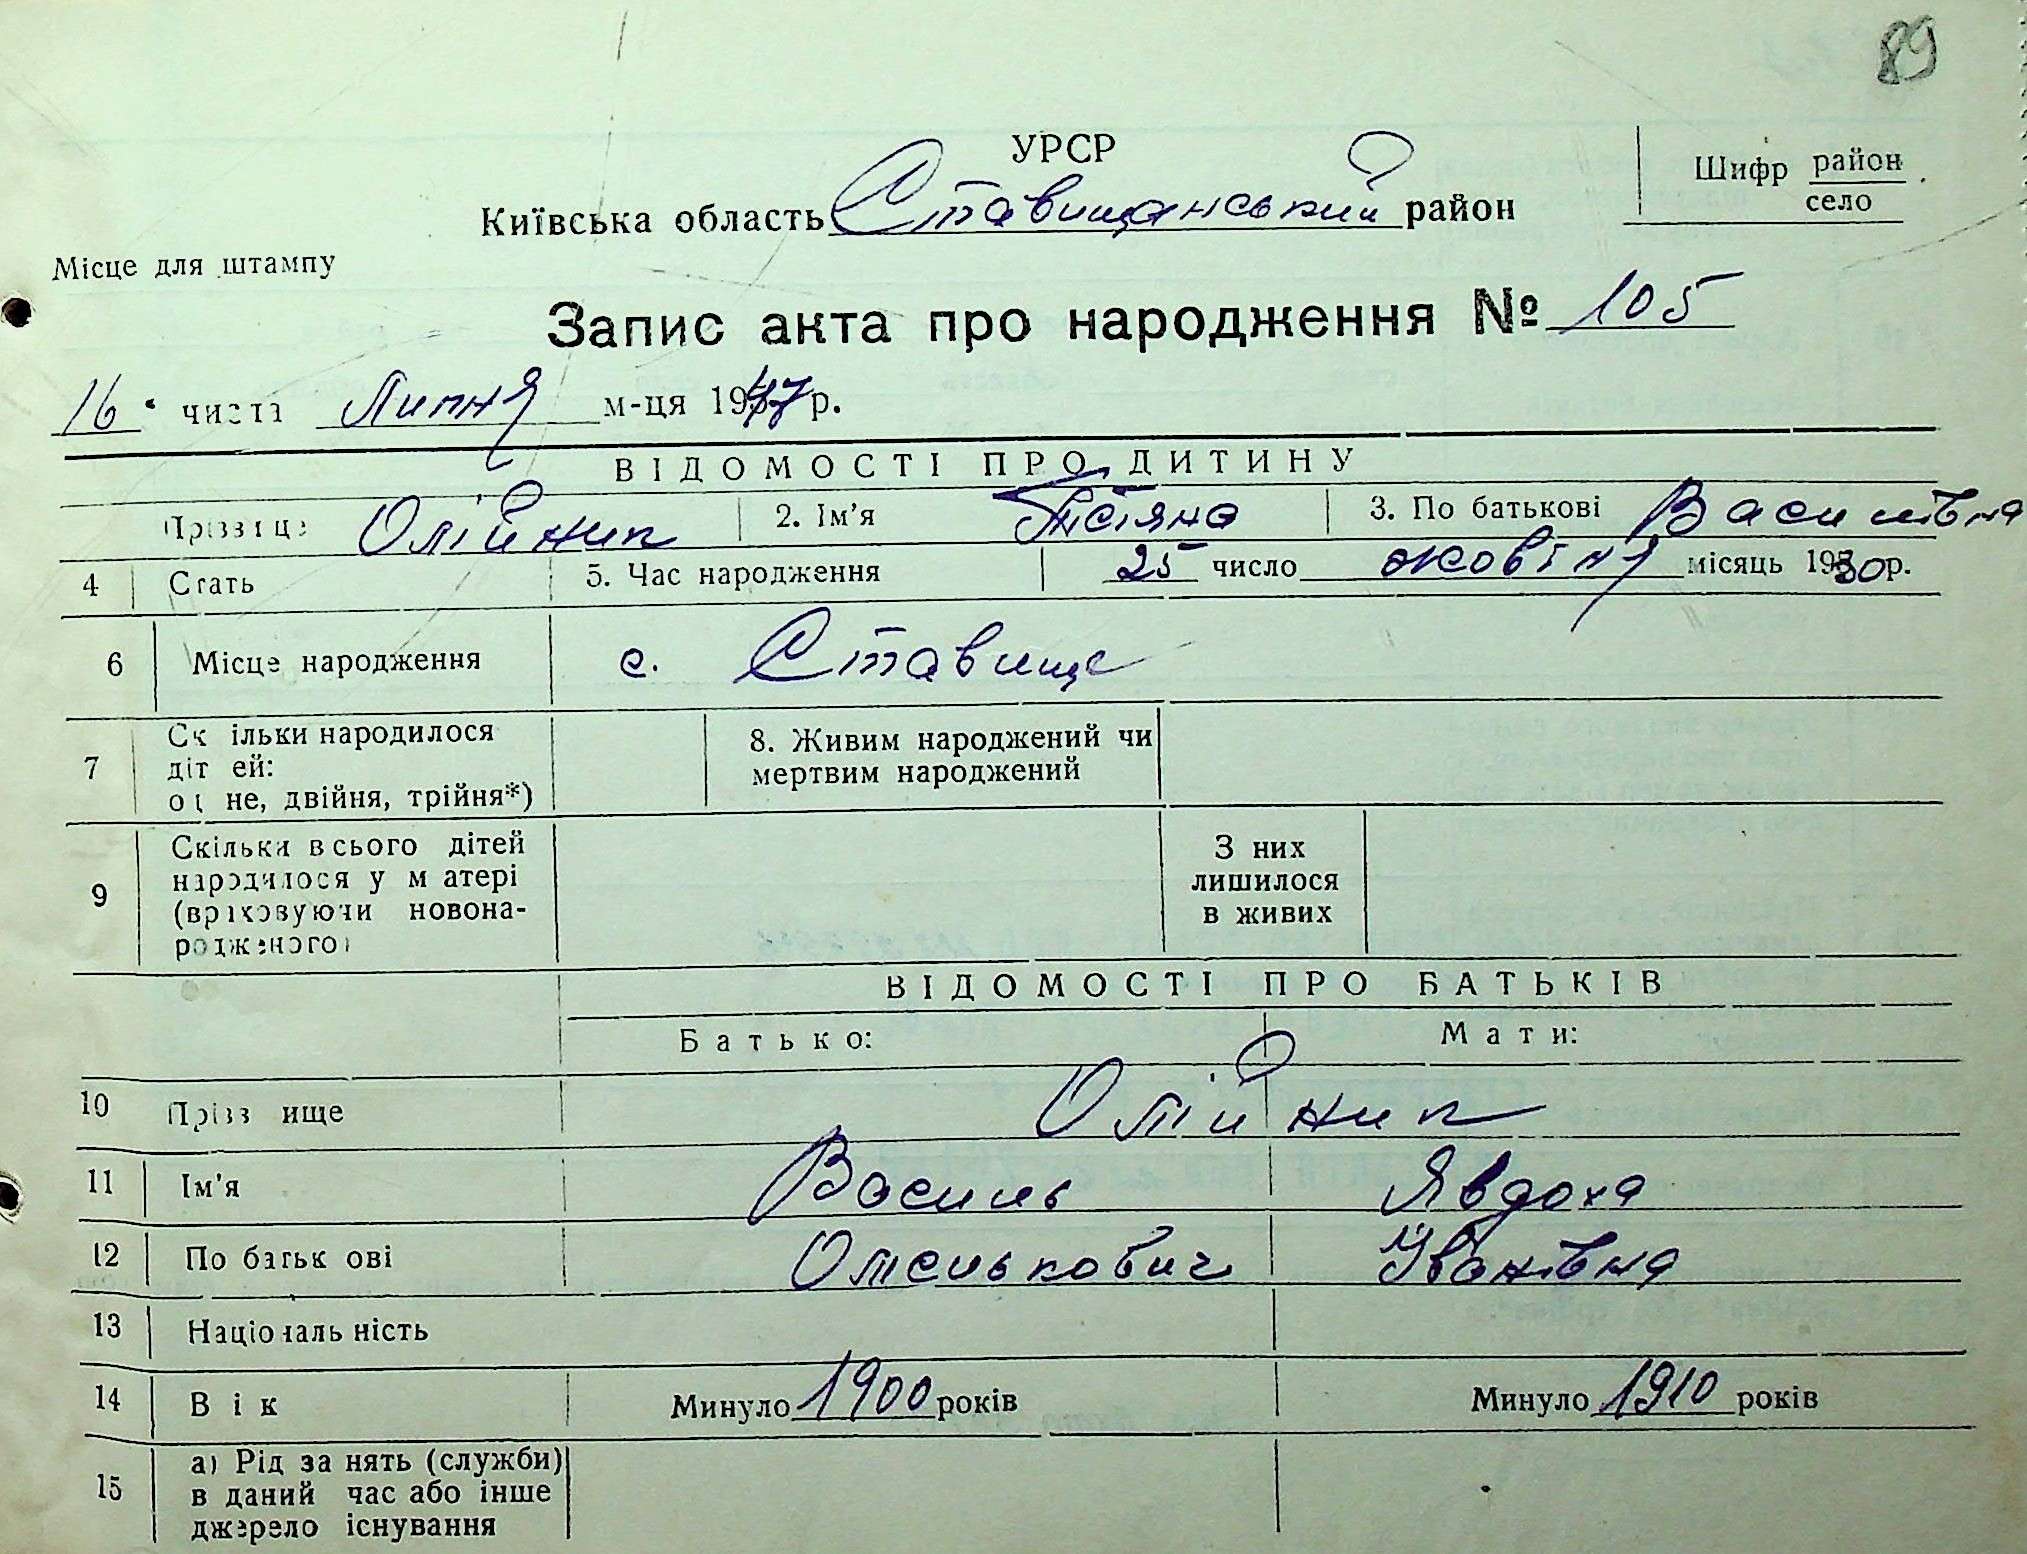 89
УРСР
Київська область Ставищанський район
Шифр район
село
Місце для штампу
Запис акта про народження № 105
16 числа Липня м-ця 1947 р.
ВІДОМОСТІ ПРО ДИТИНУ
Прізвище Олійник 2. Ім'я Тетяна 3. По батькові Василівна
4 Стать 5. Час народження 25 число жовтня місяць 1930 р.
6 Місце народження с. Ставище
7 Скільки народилося дітей: одне, двійня, трійня*) 8. Живим народжений чи мертвим народжений
9 Скільки всього дітей народилося у матері (враховуючи новонародженого) З них лишилося в живих
ВІДОМОСТІ ПРО БАТЬКІВ
Батько: Мати:
10 Прізвище Олійник
11 Ім'я Василь Явдоха
12 По батькові Омелькович Іванівна
13 Національність
14 Вік Минуло 1900 років Минуло 1910 років
15 а) Рід занять (служби) в даний час або інше джерело існування